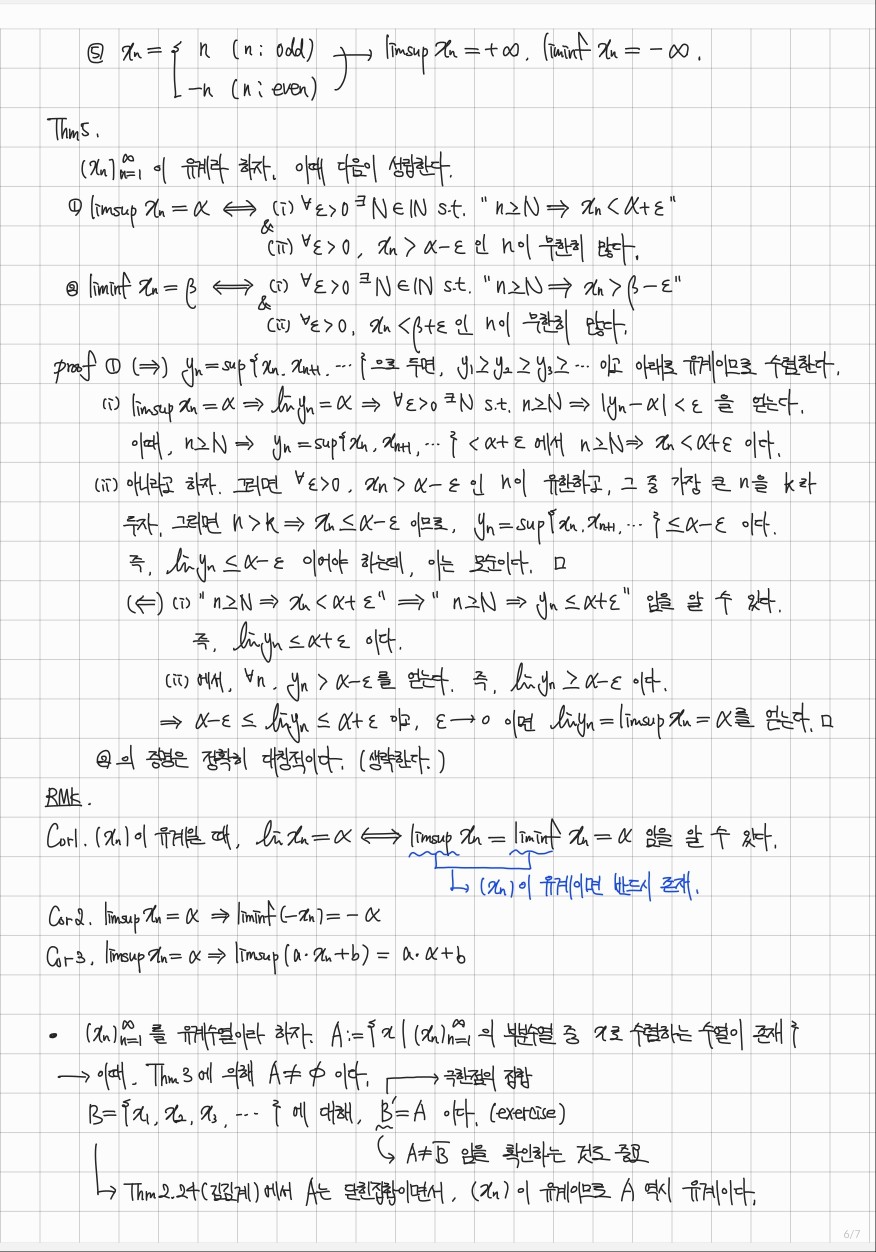 ⑤ xₙ = { n (n : odd) → limsup xₙ = +∞, liminf xₙ = -∞.
-n (n : even)
Thm5.
(xₙ)ₙ₌₁^∞ 이 유계라 하자. 이때 다음이 성립한다.
① limsup xₙ = α ⟺ (i) ∀ε>0 ∃N∈ℕ s.t. "n≥N ⇒ xₙ < α+ε"
& (ii) ∀ε>0, xₙ > α-ε 인 n이 무한히 많다.
② liminf xₙ = β ⟺ (i) ∀ε>0 ∃N∈ℕ s.t. "n≥N ⇒ xₙ > β-ε"
& (ii) ∀ε>0, xₙ < β+ε 인 n이 무한히 많다.
proof ① (⇒) yₙ = sup{xₙ, xₙ₊₁, ⋯} 으로 두면, y₁ ≥ y₂ ≥ y₃ ≥ ⋯ 이고 아래로 유계이므로 수렴한다.
(i) limsup xₙ = α ⇒ lim yₙ = α ⇒ ∀ε>0 ∃N s.t. n≥N ⇒ |yₙ-α| < ε 을 얻는다.
이때, n≥N ⇒ yₙ = sup{xₙ, xₙ₊₁, ⋯} < α+ε 에서 n≥N ⇒ xₙ < α+ε 이다.
(ii) 아니라고 하자. 그러면 ∀ε>0, xₙ > α-ε 인 n이 유한하고, 그 중 가장 큰 n을 k라
두자. 그러면 n > k ⇒ xₙ ≤ α-ε 이므로, yₙ = sup{xₙ, xₙ₊₁, ⋯} ≤ α-ε 이다.
즉, lim yₙ ≤ α-ε 이어야 하는데, 이는 모순이다. □
(⇐) (i) "n≥N ⇒ xₙ < α+ε" ⟹ "n≥N ⇒ yₙ ≤ α+ε" 임을 알 수 있다.
즉, lim yₙ ≤ α+ε 이다.
(ii) 에서, ∀n, yₙ > α-ε를 얻는다. 즉, lim yₙ ≥ α-ε 이다.
⇒ α-ε ≤ lim yₙ ≤ α+ε 이고, ε→0 이면 lim yₙ = limsup xₙ = α를 얻는다. □
② 의 증명은 정확히 대칭적이다. (생략한다.)
RMK.
Cor1. (xₙ)이 유계일 때, lim xₙ = α ⟺ limsup xₙ = liminf xₙ = α 임을 알 수 있다.
↳ (xₙ)이 유계이면 반드시 존재.
Cor2. limsup xₙ = α ⇒ liminf(-xₙ) = -α
Cor3. limsup xₙ = α ⇒ limsup(a·xₙ+b) = a·α+b
• (xₙ)ₙ₌₁^∞ 를 유계수열이라 하자. A := {x | (xₙ)ₙ₌₁^∞ 의 부분수열 중 x로 수렴하는 수열이 존재}
→ 이때, Thm3 에 의해 A ≠ ∅ 이다. → 극한점의 집합
B = {x₁, x₂, x₃, ⋯} 에 대해, B' = A 이다. (exercise)
↳ A ≠ B̅ 임을 확인하는 것도 중요
↳ Thm2.24(김김계)에서 A는 닫힌집합이면서, (xₙ)이 유계이므로 A 역시 유계이다.
6/7